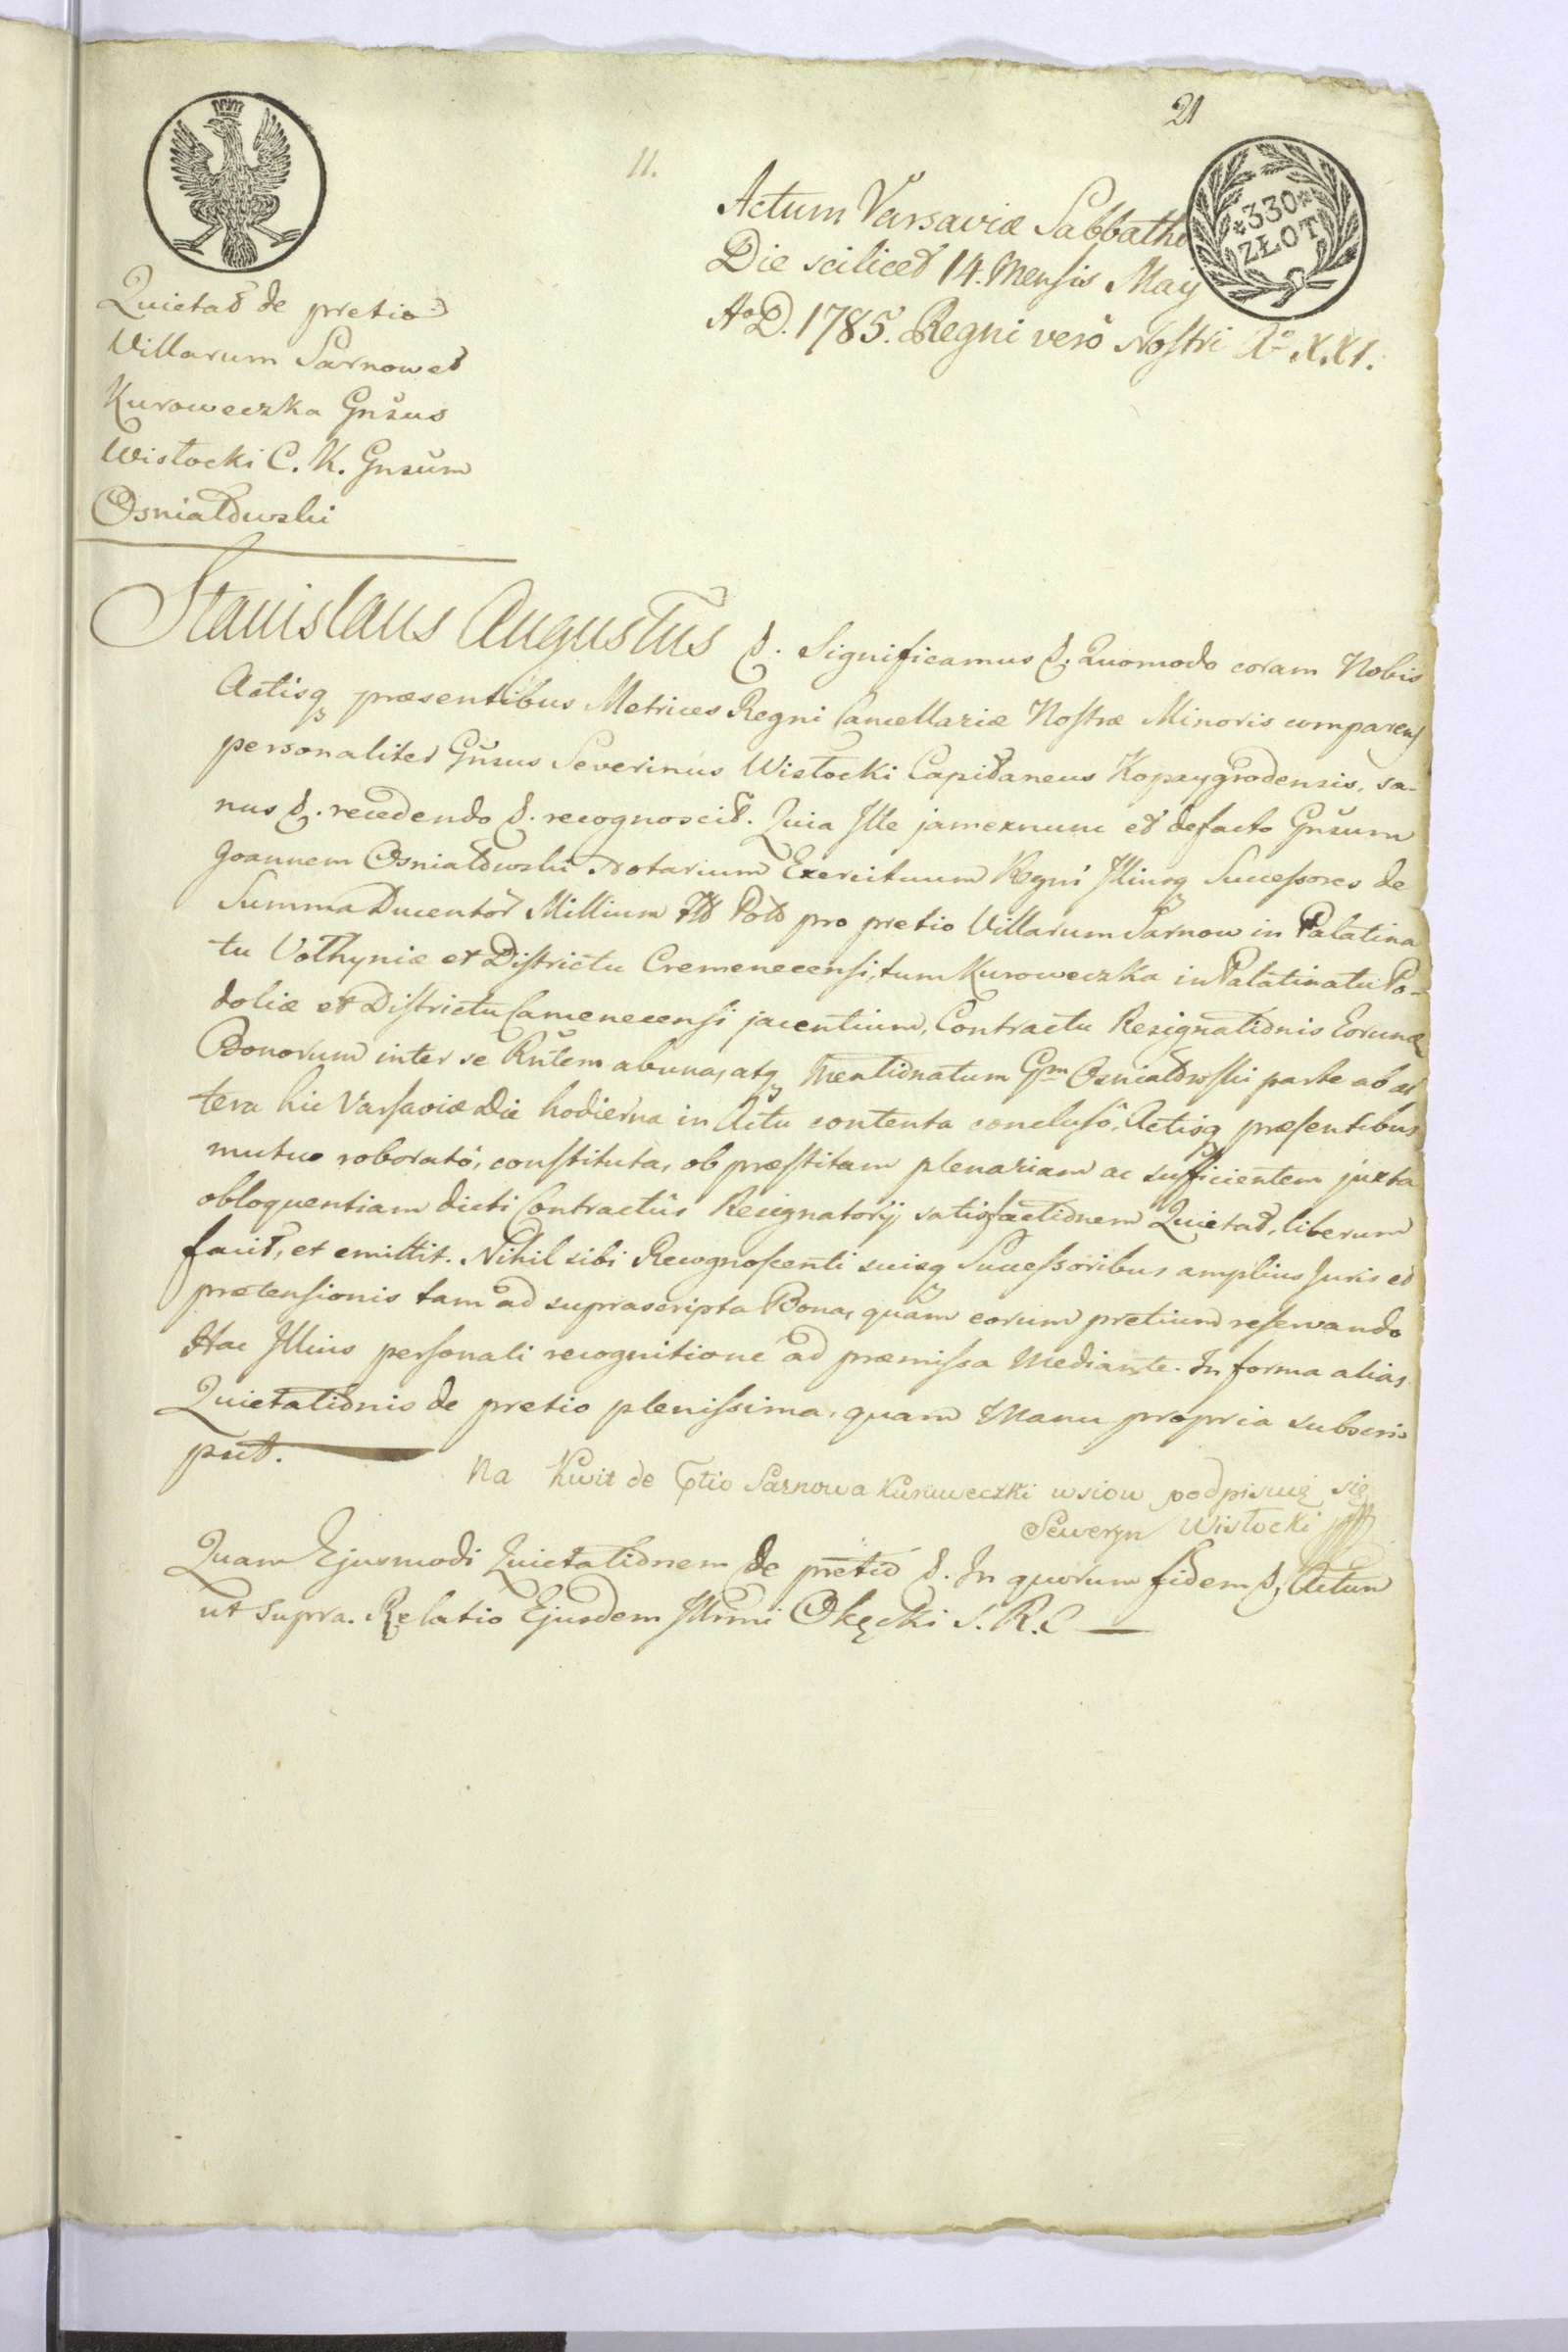 21
11.
330
ZŁOT
Actum Varsaviæ Sabbatho
Die scilicet 14. Mensis Maij
Aº D. 1785. Regni verò Nostri Aº XXI.
Quietat de pretio
Villarum Sarnow et
Kuroweczka Gnsus
Wisłocki C. K. Gnsum
Osniałowski
Stanislaus Augustus &. Significamus &. Quomodo coram Nobis
Actisq præsentibus Metrices Regni Cancellariæ Nostræ Minoris comparens
personaliter Gnsus Severinus Wisłocki Capitaneus Kopaygrodensis, sa-
nus &. recedendo &. recognoscit. Quia Ille jamexnunc et defacto Gnsum
Joannem Osniałowski Notarium Exercituum Regni Illiusq Successores de
Summa Ducentor Millium Fld Pold pro pretio Villarum Sarnow in Palatina
tu Volhyniæ et Districtu Cremenecensi, tum Kuroweczka in Palatinatu Po-
doliæ et Districtu Camenecensi jacentium, Contractu Resignationis Eorumd
Bonorum inter se Rntem ab una, atq Mentionatum Gm Osniałowski parte ab al
tera hic Varsaviæ Die hodierna in Actu contenta conclusô, Actisq præsentibus
mutuo roboratô, constituta, ob præstitam plenariam ac sufficientem juxta
obloquentiam dicti Contractûs Resignatorij satisfactionem Quietat, liberum
facit, et emittit. Nihil sibi Recognoscenti suisq Successoribus amplius Juris et
prætensionis tam ad suprascripta Bona, quàm eorum pretium reservando
Hac Illius personali recognitione ad præmissa Mediante. In forma alias
Quietationis de pretio plenissima, quam Manu propria subscri
psit.
Na Kwit de ptio Sarnowa Kuruweczki wsiow podpisuię się
Seweryn Wisłocki
Quam Ejusmodi Quietationem de pretio &. In quorum fidem &. Actum
ut supra. Relatio Ejusdem Illmi Okęcki S. R. C